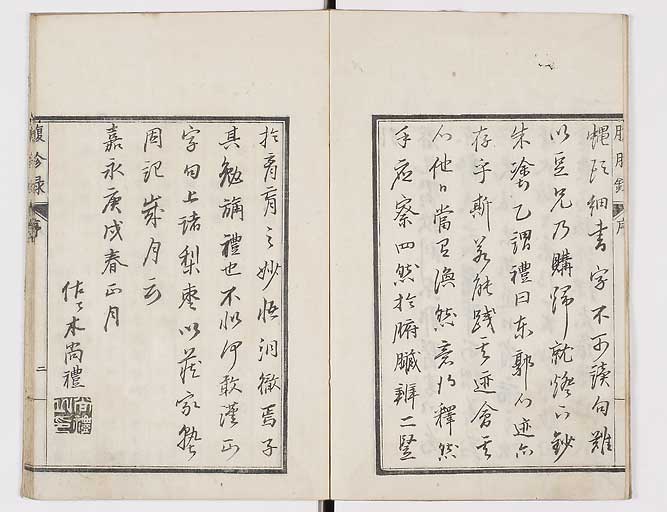 蠅頭細書字不可讀句難
以足兄乃購歸就燈下鈔
朱塗乙謂禮曰東郭之迹
存乎斯若能践其迹會其
心他日當有渙然意冰釋然
手店察四然於腑臟辨二豎
於肓育之妙悟洞徹焉子
其勉旃禮也不似何敢漫正
字句上諸梨棗以藏家塾
因記歲月云
嘉永庚戌春正月
佐々木尚禮
腹診録
序
二